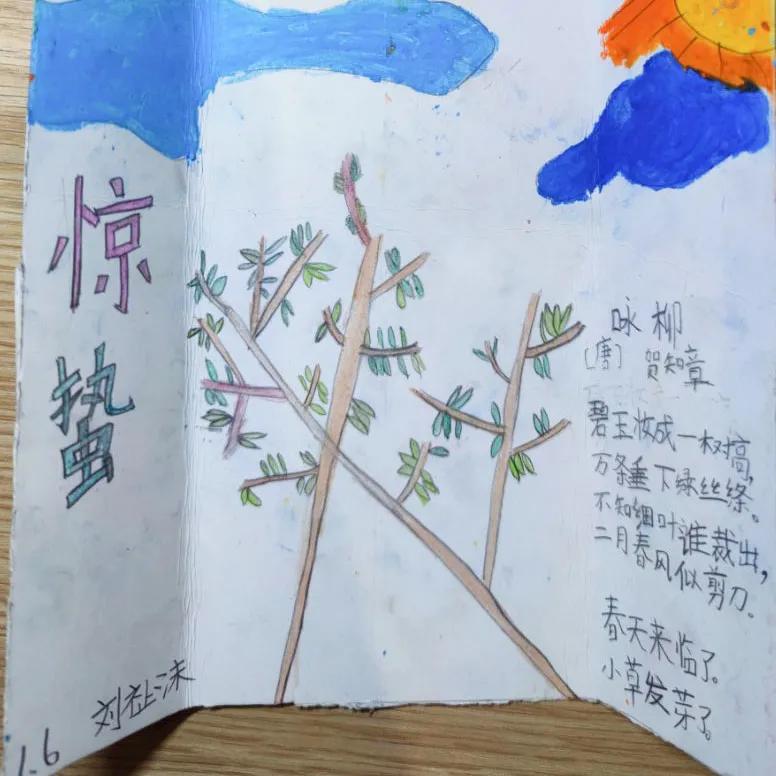 惊
蛰
刘祉沫
1.6
咏柳
[唐] 贺知章
碧玉妆成一树高,
万条垂下绿丝绦。
不知细叶谁裁出,
二月春风似剪刀.
春天来临了。
小草发芽了。